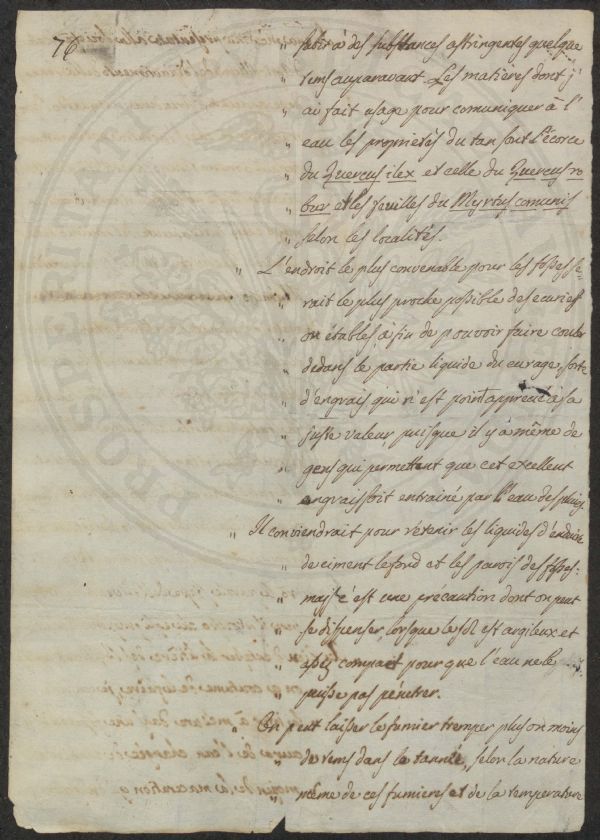 76
" settir à des substances astringentes quelque
" tems auparavant. Les matières dont j'
" ai fait usage pour comuniquer à l'
" eau les proprietés du tan sont l'écorce
" du Quercus ilex et celle du Quercus ro
" bur et les feuilles du Myrtus comunis
" selon les localités.
" L'endroit le plus convenable pour les fosses se-
" rait le plus proche possible des ecuries
" ou étables, a fin de pouvoir faire couler
" dedans le partie liquide du curage, sorte
" d'engrais qui n'est point apprecié à sa
" juste valeur, puisque il y à même de
" gens qui permettent que cet excellent
" engrais soit entrainé par l'eau des pluies
" Il conviendrait pour retenir les liquides d'enduire
" de ciment le fond et les parois des fosses:
" mais c'est une précaution dont on peut
" se dispenser lorsque le sol est argileux et
" assez compact pour que l'eau ne le
" puisse pas pénétrer.
" On peut laisser le fumier tremper plus ou moins
" de tems dans le tannée, selon la nature
" même de ces fumieres et de la temperature